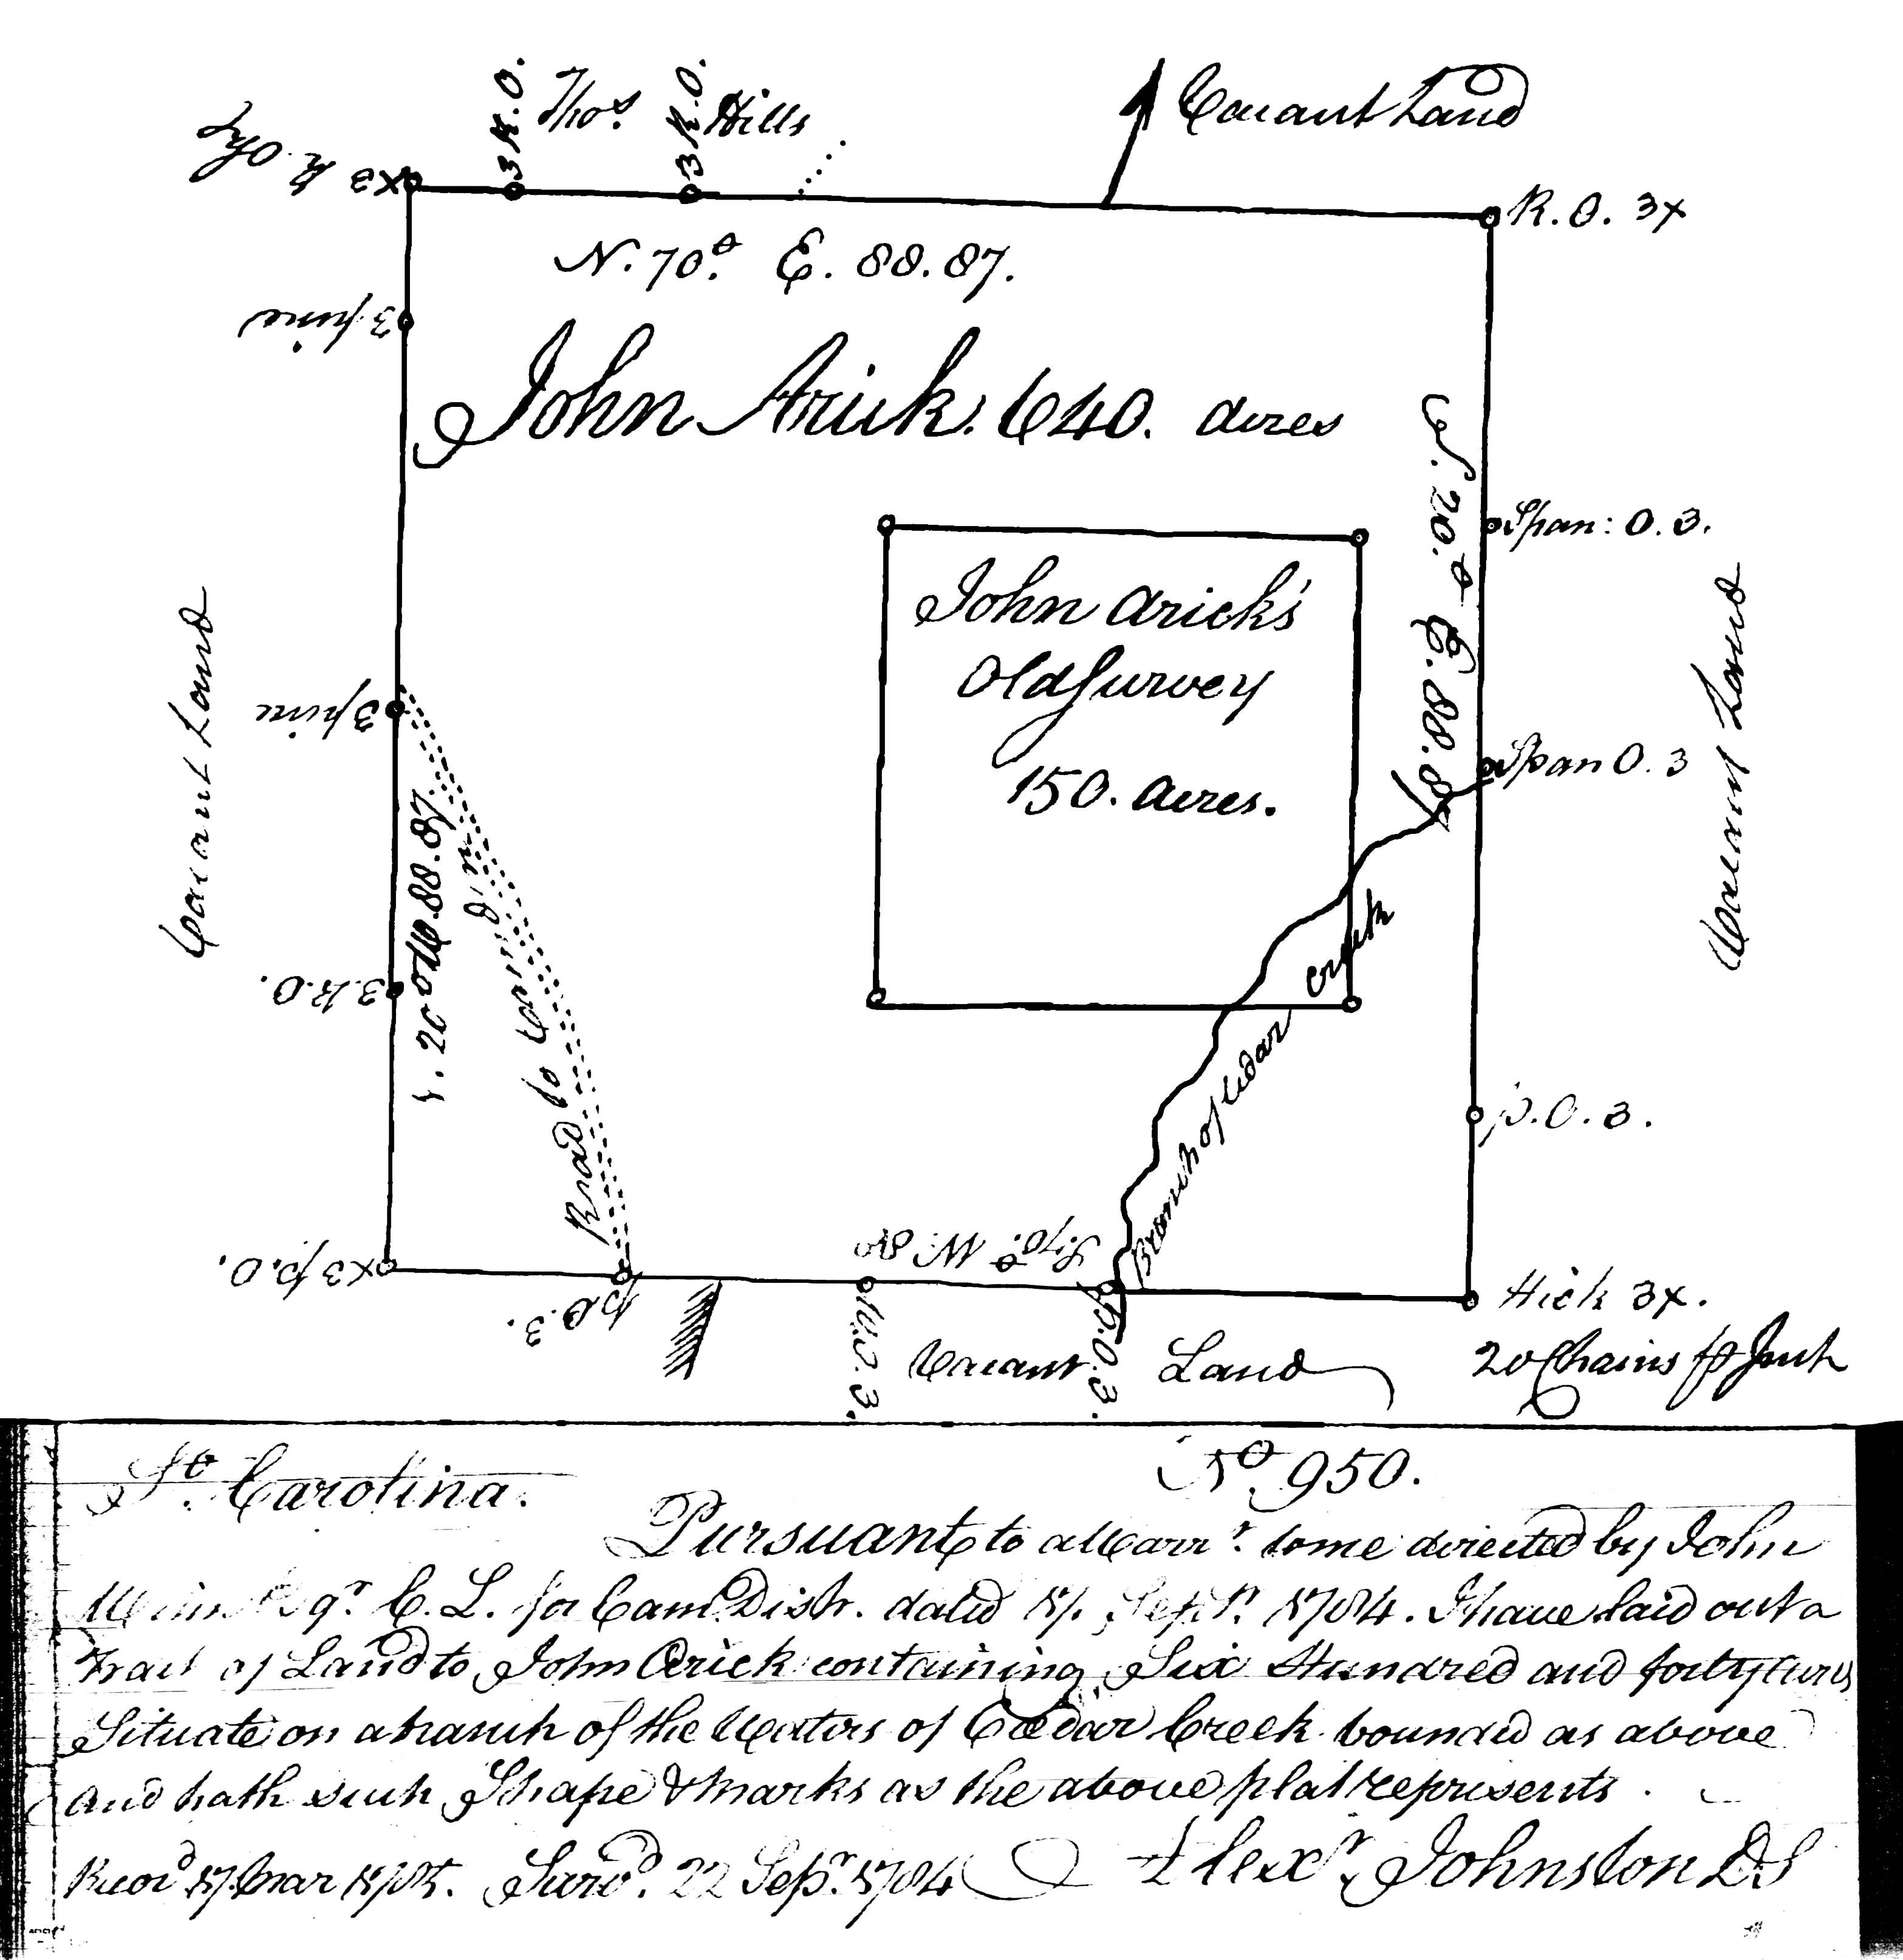 Thos. Hills
Vacant Land
3 R.O.
3 R.O.
x3
R.O. 3x
N. 70° E. 88.87.
3 pine
John Arick. 640. acres
S. 20.° E. 88.87
Span: O. 3.
John Arick's
Old Survey
150. acres.
Vacant Land
Vacant Land
3 pine
Span O. 3
20° W. 88.87
3.R.O.
Road to
Creek
Branch of Cedar
P.O. 3.
S. 70.° W. 88
x3 p.O.
p.O. 3.
P.O. 3.
Hick 3x.
Vacant Land
20 Chains p Inch
So. Carolina.
No. 950.
Pursuant to a Warrt. to me directed by John
Esqr. C. L. for Cam Distr. dated Sepr. 1784. I have laid out a
Tract of Land to John Arick containing Six Hundred and forty acres
Situate on a branch of the Waters of Ceedar Creek bounded as above
and hath such Shape & marks as the above plat represents.
Recod 17 Mar Survd. 22 Sepr. 1784 Alexr. Johnston DS